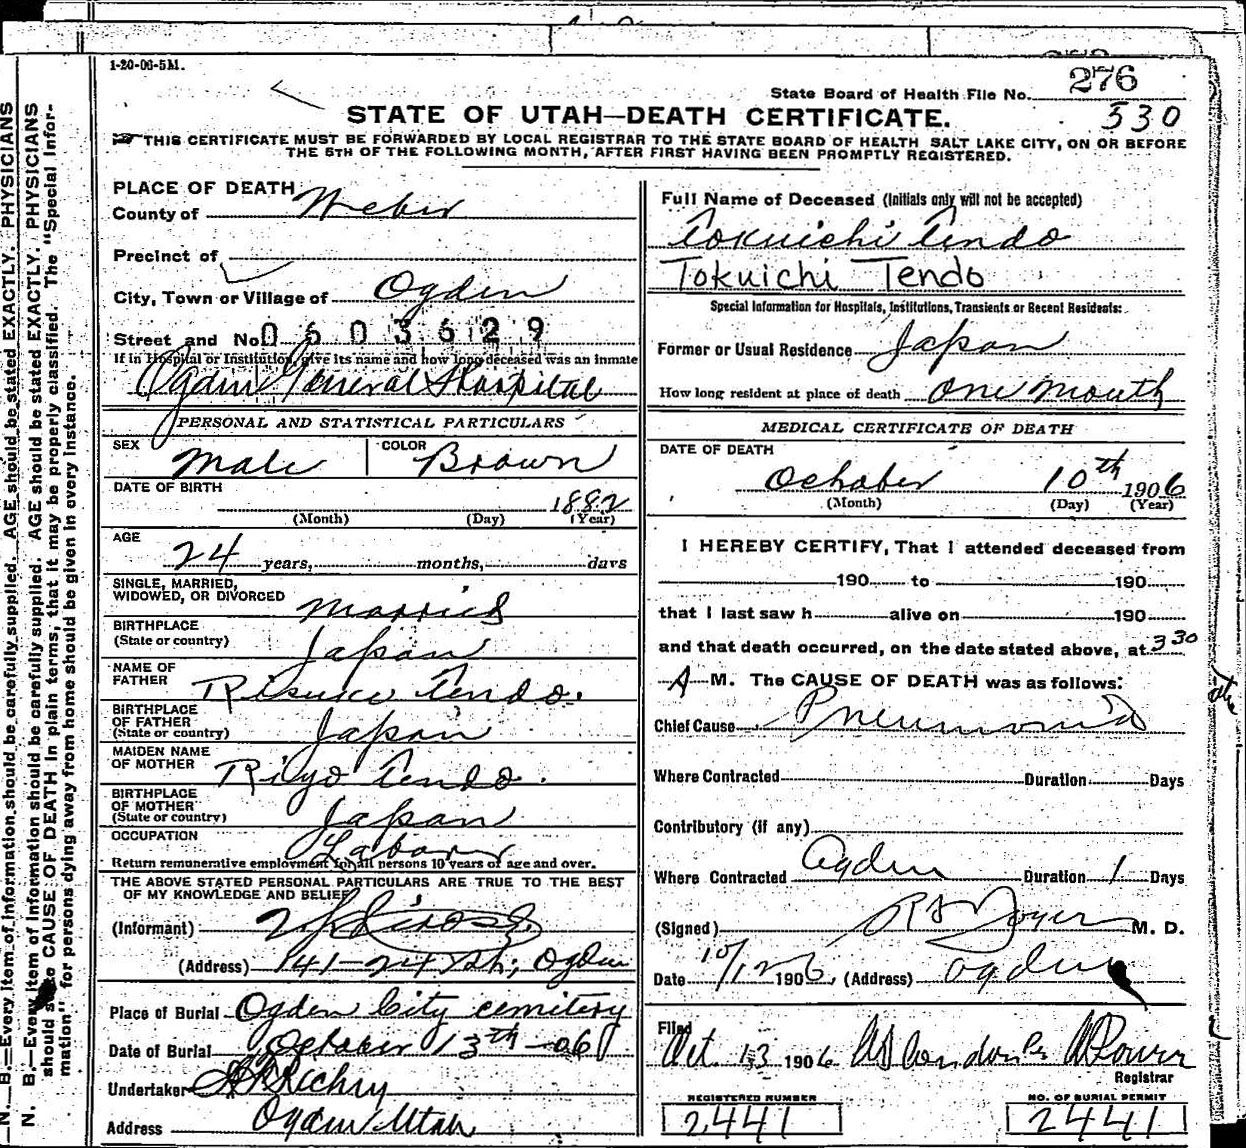 1-20-06-5M.
State Board of Health File No. 276
530
STATE OF UTAH—DEATH CERTIFICATE.
THIS CERTIFICATE MUST BE FORWARDED BY LOCAL REGISTRAR TO THE STATE BOARD OF HEALTH SALT LAKE CITY, ON OR BEFORE
THE 5TH OF THE FOLLOWING MONTH, AFTER FIRST HAVING BEEN PROMPTLY REGISTERED.
PLACE OF DEATH
County of Weber
Precinct of
City, Town or Village of Ogden
Street and No. 0603629
If in Hospital or Institution, give its name and how long deceased was an inmate
Ogden General Hospital
PERSONAL AND STATISTICAL PARTICULARS
SEX Male COLOR Brown
DATE OF BIRTH 1882
(Month) (Day) (Year)
AGE 24 years, months, days
SINGLE, MARRIED,
WIDOWED, OR DIVORCED Married
BIRTHPLACE
(State or country) Japan
NAME OF
FATHER Tendo.
BIRTHPLACE
OF FATHER
(State or country) Japan
MAIDEN NAME
OF MOTHER Riyo Tendo.
BIRTHPLACE
OF MOTHER
(State or country) Japan
OCCUPATION Laborer
Return remunerative employment for all persons 10 years of age and over.
THE ABOVE STATED PERSONAL PARTICULARS ARE TRUE TO THE BEST
OF MY KNOWLEDGE AND BELIEF
(Informant)
(Address) 141-24 St; Ogden
Place of Burial Ogden City cemitery
Date of Burial October 13th-06
Undertaker
Address Ogden Utah
Full Name of Deceased (Initials only will not be accepted)
Tokuichi Tendo
Tokuichi Tendo
Special Information for Hospitals, Institutions, Transients or Recent Residents:
Former or Usual Residence Japan
How long resident at place of death one month
MEDICAL CERTIFICATE OF DEATH
DATE OF DEATH
October 10th 1906
(Month) (Day) (Year)
I HEREBY CERTIFY, That I attended deceased from
190 to 190
that I last saw h alive on 190
and that death occurred, on the date stated above, at 3 30
A M. The CAUSE OF DEATH was as follows:
Chief Cause Pneumonia
Where Contracted Duration Days
Contributory (if any)
Where Contracted Ogden Duration 1 Days
(Signed) M. D.
Date 10/12 1906, (Address) Ogden
Filed
Oct. 13 1906
Registrar
REGISTERED NUMBER
2441
NO. OF BURIAL PERMIT
2441
N. B.—Every item of information should be carefully supplied. AGE should be stated EXACTLY. PHYSICIANS
N. B.—Every item of information should be carefully supplied. AGE should be stated EXACTLY. PHYSICIANS
should state CAUSE OF DEATH in plain terms, that it may be properly classified. The "Special Infor-
mation" for persons dying away from home should be given in every instance.